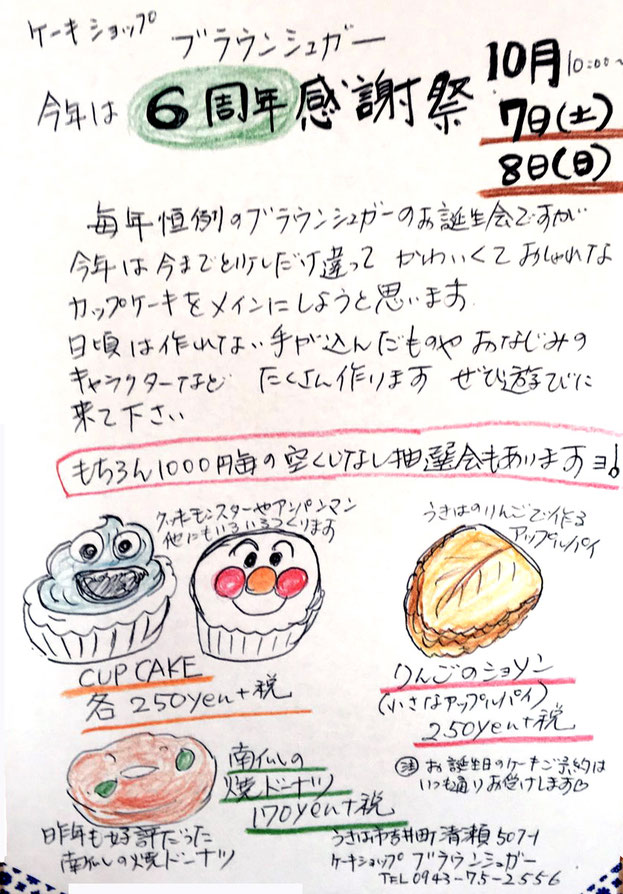 ケーキショップ ブラウンシュガー
今年は 6周年感謝祭
10月 10:00~
7日(土)
8日(日)
毎年恒例のブラウンシュガーのお誕生会ですが
今年は今までと少しだけ違って かわいくておしゃれな
カップケーキをメインにしようと思います
日頃は作れない手が込んだものや おなじみの
キャラクターなど たくさん作ります ぜひ遊びに
来て下さい
もちろん1000円毎の空くじなし抽選会もありますヨ!
クッキーモンスターやアンパンマン
他にもいろいろつくります
うきはのりんごで作る
アップルパイ
CUP CAKE
各 250yen+税
りんごのショソン
(小さなアップルパイ)
250yen+税
南仏の
焼ドーナツ
170yen+税
昨年も好評だった
南仏の焼ドーナツ
注 お誕生日のケーキご予約は
いつも通りお受けします
うきは市吉井町清瀬507-1
ケーキショップ ブラウンシュガー
TEL 0943-75-2556